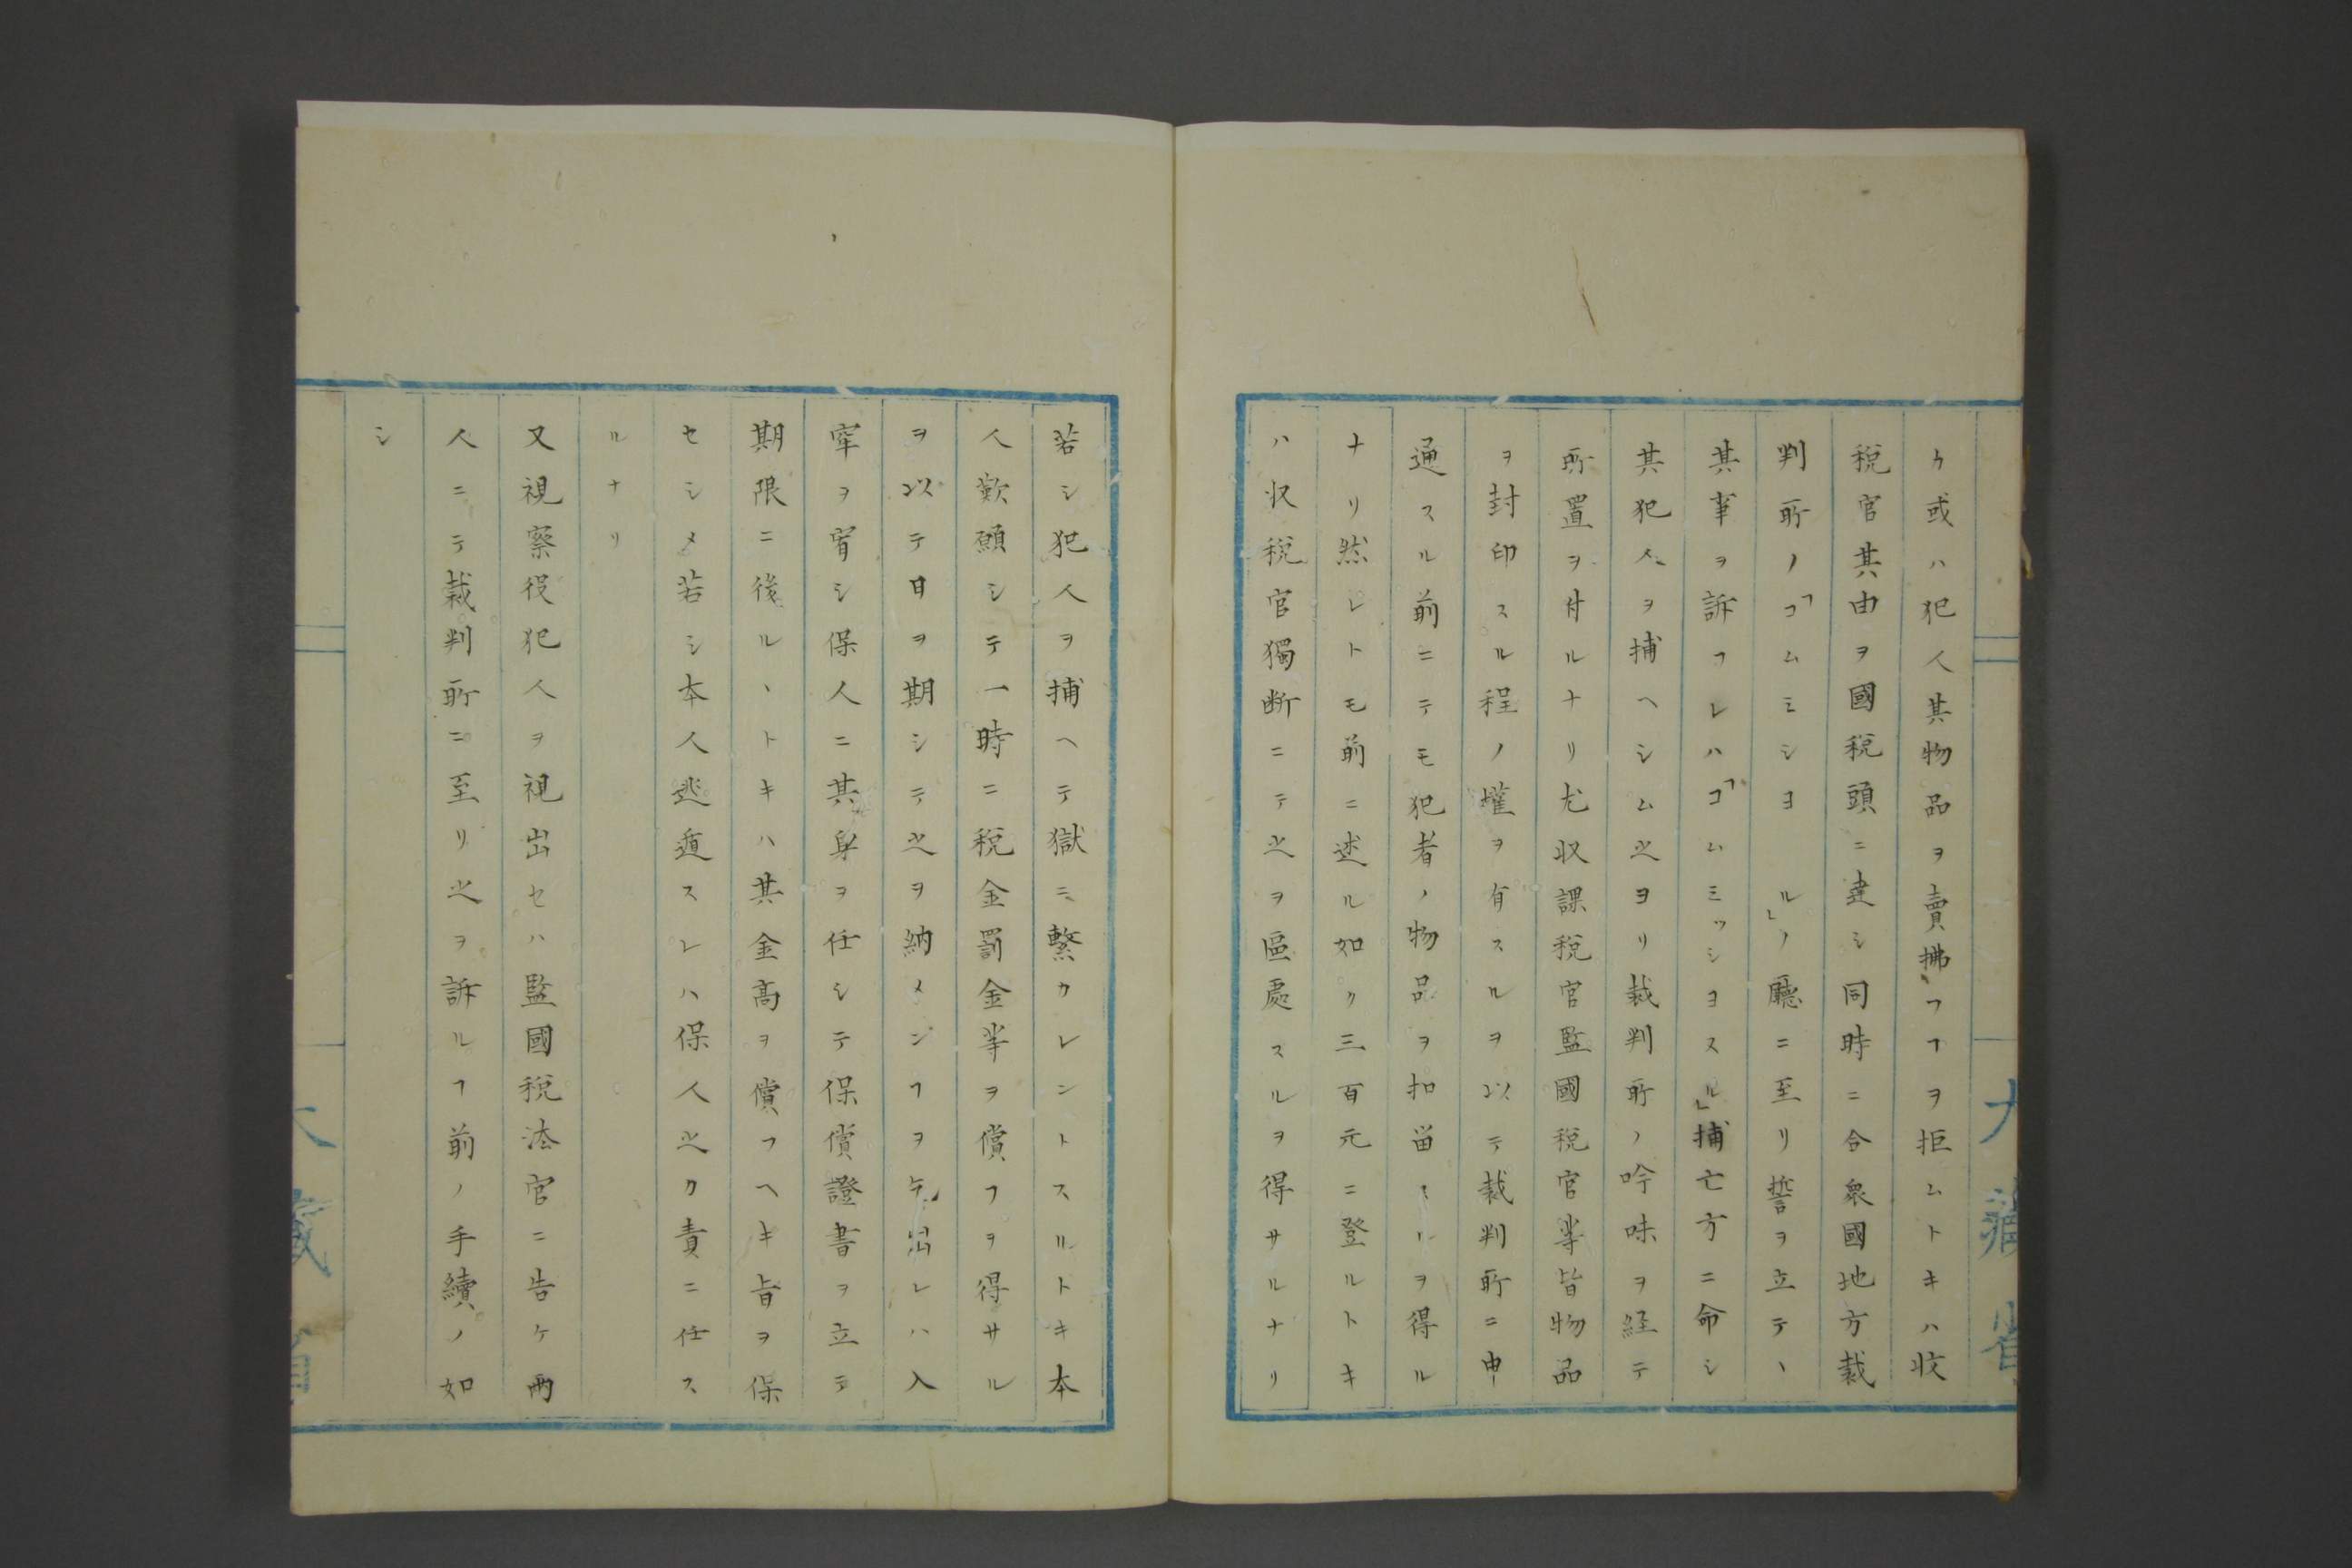 ケ或ハ犯人其物品ヲ賣拂フヿヲ拒ムトキハ收
税官其由ヲ國税頭ニ達シ同時ニ合衆國地方裁
判所ノ「コムミシヨル」ノ廳ニ至リ誓ヲ立テヽ
其事ヲ訴フレハ「コムミッシヨスル」捕亡方ニ命シ
其犯人ヲ捕ヘシム之ヨリ裁判所ノ吟味ヲ経テ
所置ヲ付ルナリ尤収課税官監國税官等皆物品
ヲ封印スル程ノ權ヲ有スルヲ以テ裁判所ニ申
通スル前ニテモ犯者ノ物品ヲ扣留スルヲ得ル
ナリ然レトモ前ニ述ル如ク三百元ニ登ルトキ
ハ収税官獨断ニテ之ヲ區處スルヲ得サルナリ
大藏省
若シ犯人ヲ捕ヘテ獄ニ繋カレントスルトキ本
人歎願シテ一時ニ税金罰金等ヲ償フヲ得サル
ヲ以テ日ヲ期シテ之ヲ納メンヿヲ出レハ入
牢ヲ宥シ保人ニ其身ヲ任シテ保償證書ヲ立テ
期限ニ後ルヽトキハ其金高ヲ償フヘキ旨ヲ保
セシメ若シ本人逃遁スレハ保人之カ責ニ任ス
ルナリ
又視察役犯人ヲ視出セハ監國税法官ニ告ケ兩
人ニテ裁判所ニ至リ之ヲ訴ルヿ前ノ手續ノ如
シ
大藏省